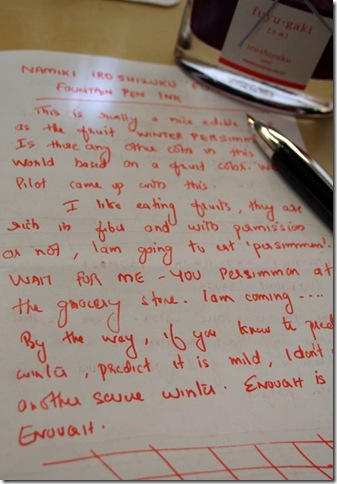 fuyu-gaki
iroshizuku
NAMIKI IROSHIZUKU FU
FOUNTAIN PEN INK
This is really a nice edible
as the fruit WINTER PERSIMM
Is there any other color in this
World based on a fruit color. W
Pilot came up with this.
I like eating fruits, they are
rich in fiber and with permission
or not, I am going to eat 'persimmon'.
WAIT FOR ME - YOU PERSIMMON at
the grocery store. I am coming ....
By the way, if you know to pred
winter, predict it is mild, I don't
another severe winter. ENOUGH is
ENOUGH.